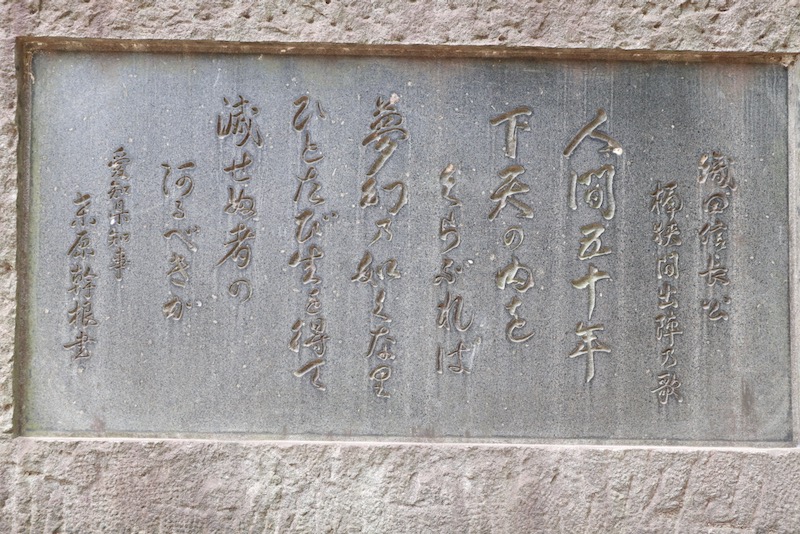 織田信長公
桶狭間出陣乃歌
人間五十年
下天の内を
くらぶれば
夢幻乃如くなり
ひとたび生を得て
滅せぬ者の
あるべきか
愛知県知事
桑原幹根書